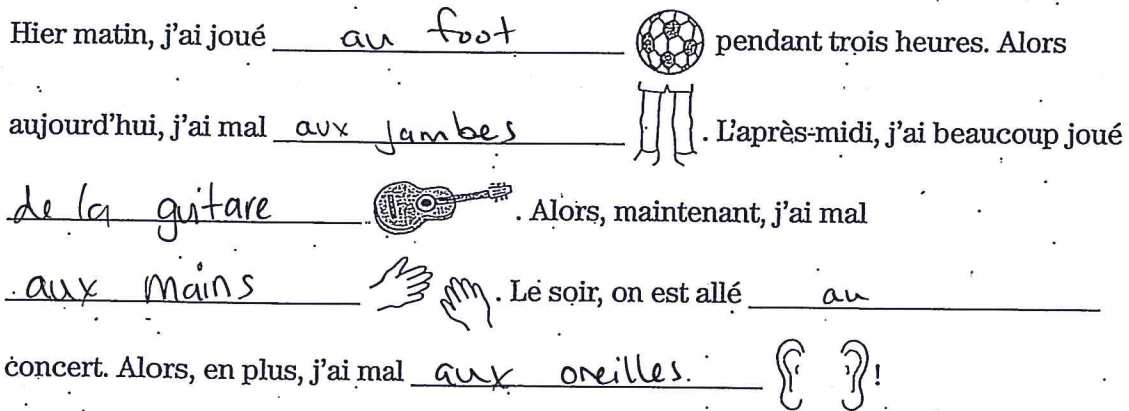 Hier matin, j'ai joué au foot pendant trois heures. Alors
aujourd'hui, j'ai mal aux jambes . L'après-midi, j'ai beaucoup joué
de la guitare . Alors, maintenant, j'ai mal
aux mains . Le soir, on est allé au
concert. Alors, en plus, j'ai mal aux oreilles. !